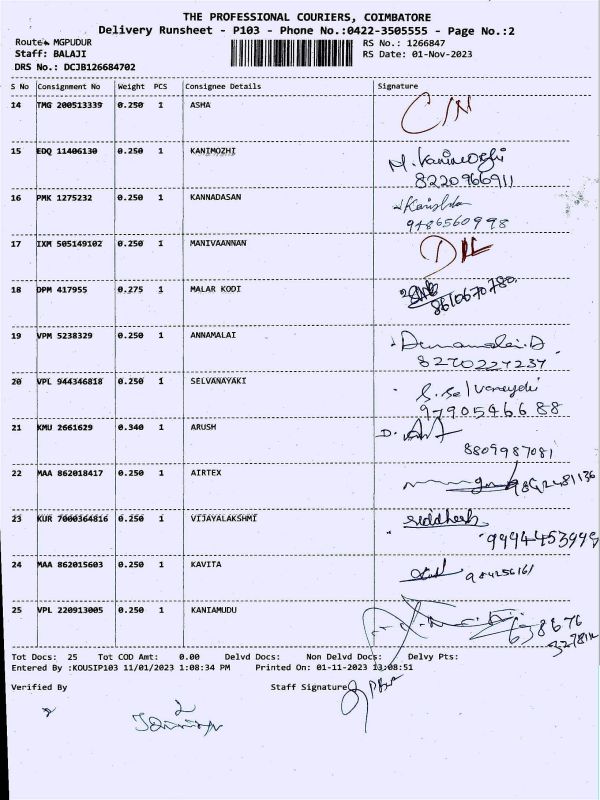 THE PROFESSIONAL COURIERS, COIMBATORE
Delivery Runsheet - P103 - Phone No.:0422-3505555 - Page No.:2
Route: MGPUDUR RS No.: 1266847
Staff: BALAJI RS Date: 01-Nov-2023
DRS No.: DCJB126684702
S No Consignment No Weight PCS Consignee Details Signature
14 TMG 200513339 0.250 1 ASHA
15 EDQ 11406130 0.250 1 KANIMOZHI M. Kanimozhi
8220966911
16 PMK 1275232 0.250 1 KANNADASAN
9486560998
17 IXM 505149102 0.250 1 MANIVAANNAN
18 DPM 417955 0.275 1 MALAR KODI 8610670780
19 VPM 5238329 0.250 1 ANNAMALAI
8270227237
20 VPL 944346818 0.250 1 SELVANAYAKI
9790546688
21 KMU 2661629 0.340 1 ARUSH
8809987081
22 MAA 862018417 0.250 1 AIRTEX
23 KUR 7000364816 0.250 1 VIJAYALAKSHMI
24 MAA 862015603 0.250 1 KAVITA
25 VPL 220913005 0.250 1 KANIAMUDU
Tot Docs: 25 Tot COD Amt: 0.00 Delvd Docs: Non Delvd Docs: Delvy Pts:
Entered By :KOUSIP103 11/01/2023 1:08:34 PM Printed On: 01-11-2023 13:08:51
Verified By Staff Signature